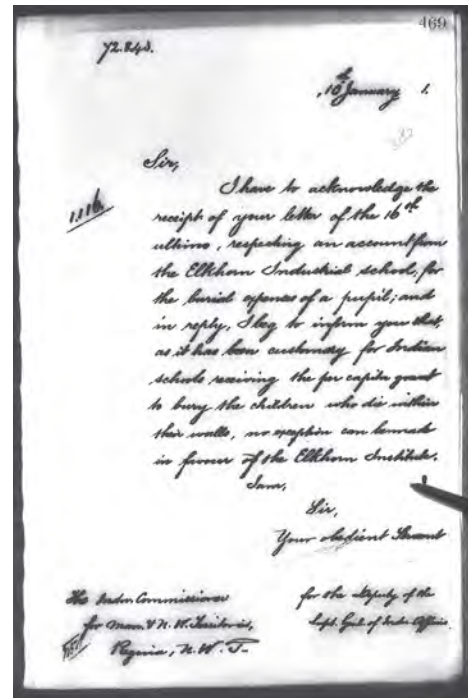 469
72.848.
10th January 1.
Sir,
1.116.
I have to acknowledge the
receipt of your letter of the 16th
ultimo, respecting an account from
the Elkhorn Industrial school, for
the burial expenses of a pupil; and
in reply, I beg to inform you that,
as it has been customary for Indian
schools receiving the per capita grant
to bury the children who die within
their walls, no exception can be made
in favour of the Elkhorn Institute.
I am,
Sir,
Your obedient Servant
for the Deputy of the
Supt. Genl. of Indn Affairs
The Indn Commissioner
for Man. & N. W. Territories,
Regina, N. W. T.